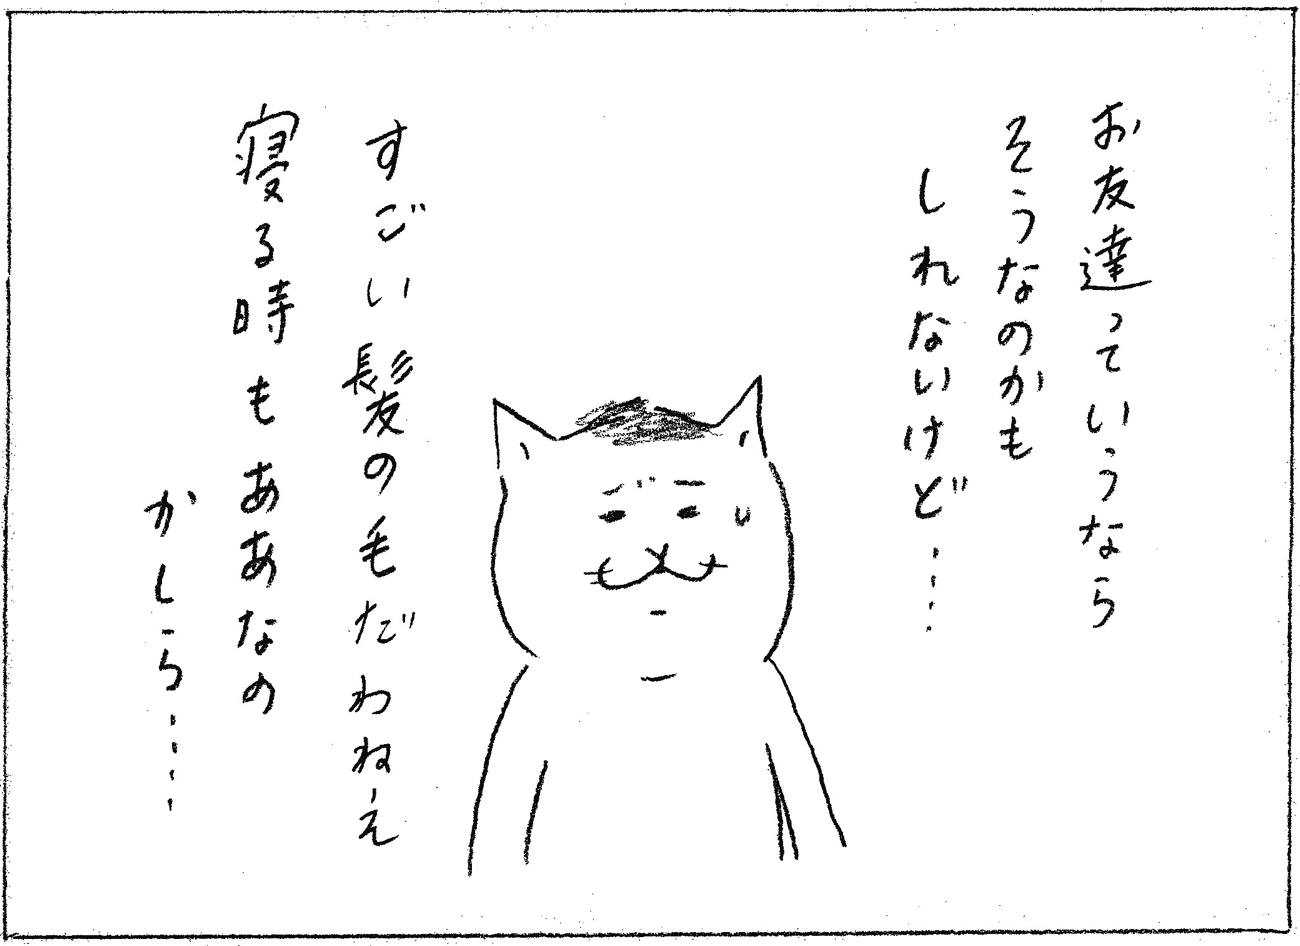 お友達っていうなら
そうなのかも
しれないけど…
すごい髪の毛だわねえ
寝る時もああなの
かしら……